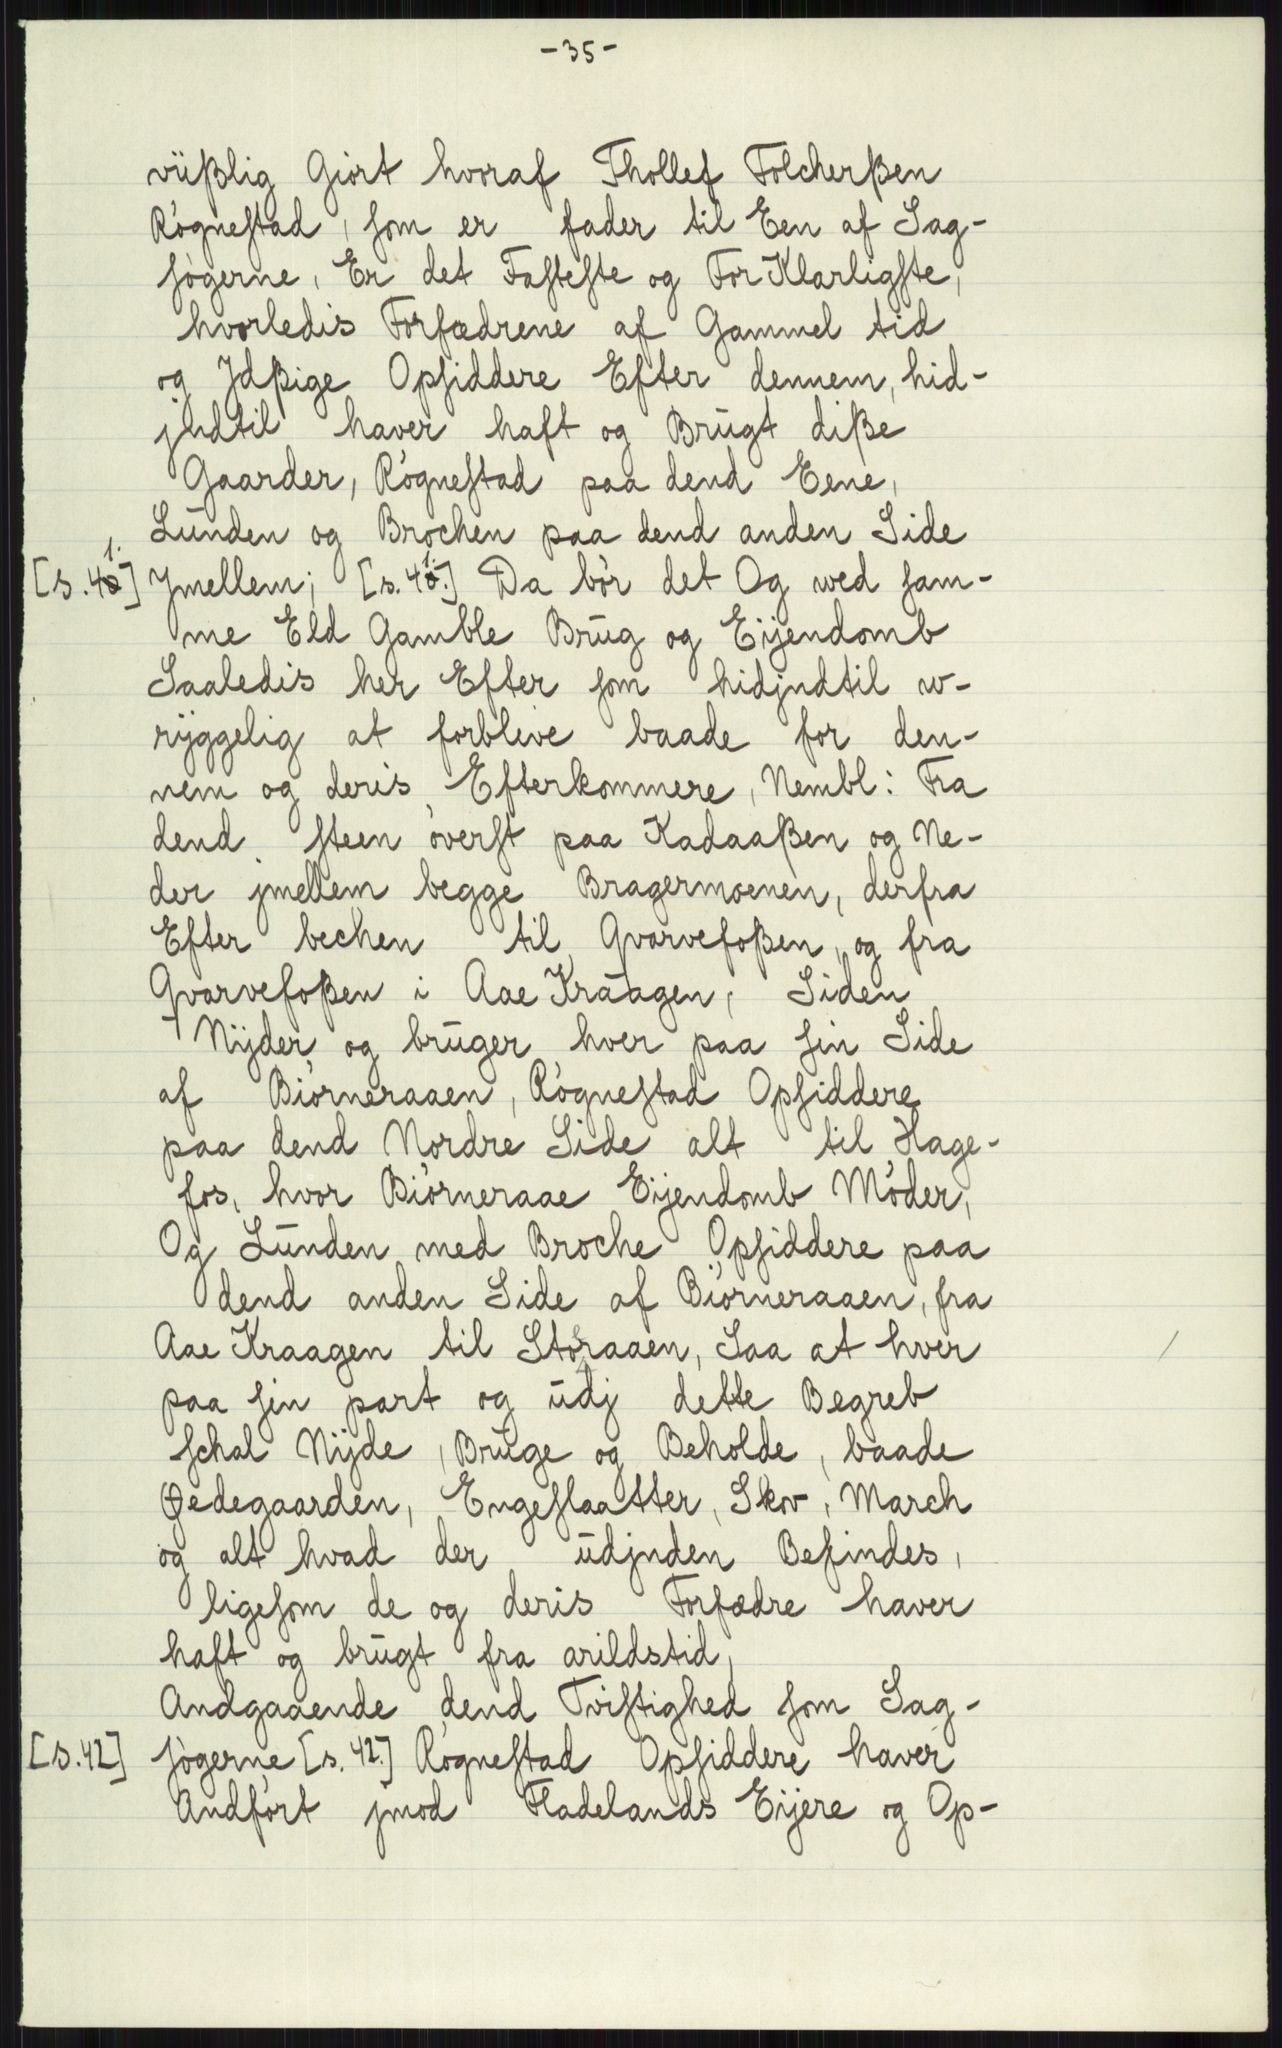 -35-
vüßlig Giort hvoraf Thollef Folcherßen
Rógneſtad, ſom er fader til Een af Sag-
ſógerne, Er det Faſteſte og ForKlarligſte,
hvorledis Forfædrene af Gammel tid
og Jdßige Opſiddere Efter dennem, hid-
jndtil haver haft og Brūgt diße
Gaarder, Rógneſtad paa dend Eene,
Lūnden og Brochen paa dend anden Side
[s. 41.] Jmellem; [s. 41.] Da bór det Og wed ſam-
me Eld Gamble Brūg og Eijendomb
Saaledis her Efter ſom hidjndtil w-
rÿggelig at forblive baade for den-
nem og deris Efterkommere, Nembl: Fra
dend ſteen óverſt paa Kadaaßen og Ne-
der jmellem begge Bragermoenen, derfra
Efter bechen til Qvarvefoßen, og fra
Qvarvefoßen i Aae Kraagen, Siden
Nijder og brūger hver paa ſin Side
af Biórneraaen, Rógneſtad Opſiddere
paa dend Nordre Side alt til Hage-
fos, hvor Biórneraae Eijendomb Móder,
Og Lūnden med Broche Opſiddere paa
dend anden Side af Biórneraaen, fra
Aae Kraagen til Storaaen, Saa at hver
paa ſin part og ūdj dette Begreb
ſchal Nijde, Brūge og Beholde, baade
Øedegaarden, Engeſlaatter, Skov, March
og alt hvad der ūdjnden Befindes,
ligeſom de og deris Forfædre haver
haft og brūgt fra arildstid,
Andgaaende dend Tviſtighed ſom Sag-
[s. 42] ſógerne [s. 42.] Rógneſtad Opſiddere haver
Andfórt jmod Fladelands Eijere og Op-